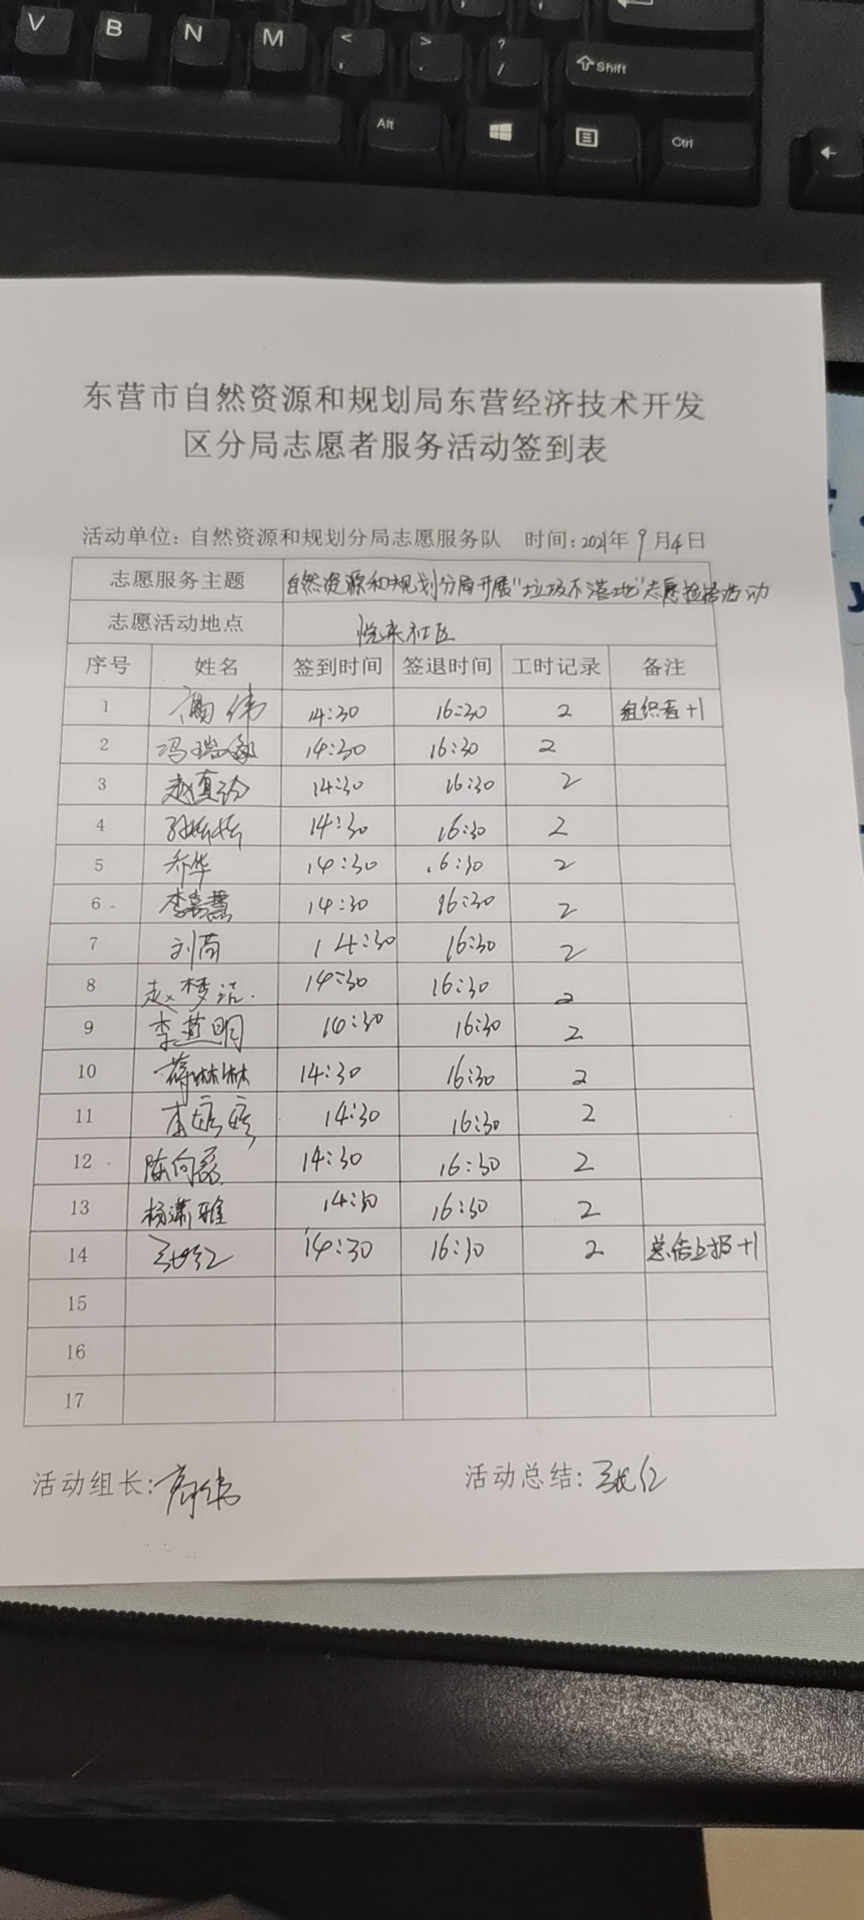 V B N M < , > . ? / Shift
Alt Ctrl
东营市自然资源和规划局东营经济技术开发
区分局志愿者服务活动签到表
活动单位: 自然资源和规划分局志愿服务队 时间: 2021年 9 月 4 日
志愿服务主题 自然资源和规划分局开展"垃圾不落地"志愿活动
志愿活动地点 悦来社区
序号 姓名 签到时间 签退时间 工时记录 备注
1 高伟 14:30 16:30 2 组织者+1
2 冯瑞 14:30 16:30 2
3 赵 14:30 16:30 2
4 14:30 16:30 2
5 乔华 14:30 16:30 2
6 李 慧 14:30 16:30 2
7 刘 14:30 16:30 2
8 赵梦 14:30 16:30 2
9 李 明 14:30 16:30 2
10 蒋林林 14:30 16:30 2
11 李婷婷 14:30 16:30 2
12 陈向磊 14:30 16:30 2
13 杨潇雅 14:30 16:30 2
14 14:30 16:30 2 总结上报+1
15
16
17
活动组长: 高伟 活动总结: